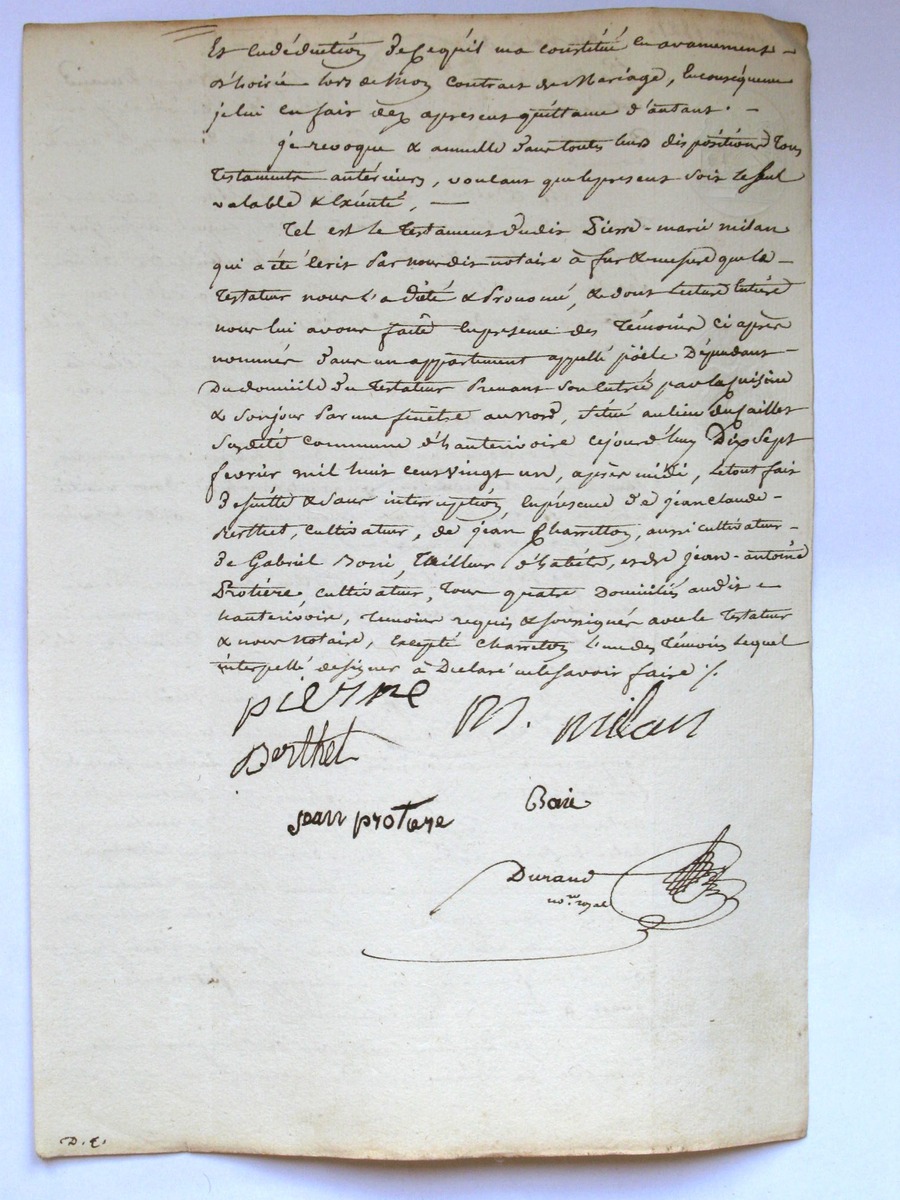 Et en déduction de ce qu'il m'a constitué en avancement
d'hoirie lors de mon contract de mariage, en conséquence
je lui en fait dez apresent quittance d'autant. —
je revoque & annulle dans toutes leurs dispositions tous
testaments antérieurs, voulant que le présent soit le seul
valable & exécuté, —
Tel est le testament dudit Pierre-marie milan
qui a été écrit par nous dit notaire à fur & mesure que le
testateur nous l'a dicté & prononcé, & dont lecture entière
nous lui avons faite en présence des témoins ci après
nommés dans un appartement appellé poële dépendant
du domicile du testateur prenant son entrée par la cuisine
& son jour par une fenêtre au nord, situé au lieu du caillet
susdite commune d'hauterivoire cejourd'huy Dix Sept
fevrier mil huit cent vingt un, après midi, le tout fait
de suitte & sans interruption, en présence de jean claude
Berthet, cultivateur, de jean Charretton, aussi cultivateur
de Gabriel Boiri, tailleur d'habits, et de jean-antoine
Protière cultivateur, tous quatre domiciliés audit
hauterivoire, témoins requis & soussignés avec le testateur
& nous notaire, excepté Charretton l'un des témoins lequel
interpellé de signer à déclaré ne le savoir faire ./.
pierre
m. milan
Berthet
jean protiere
Durand
no.re royal
D. E.